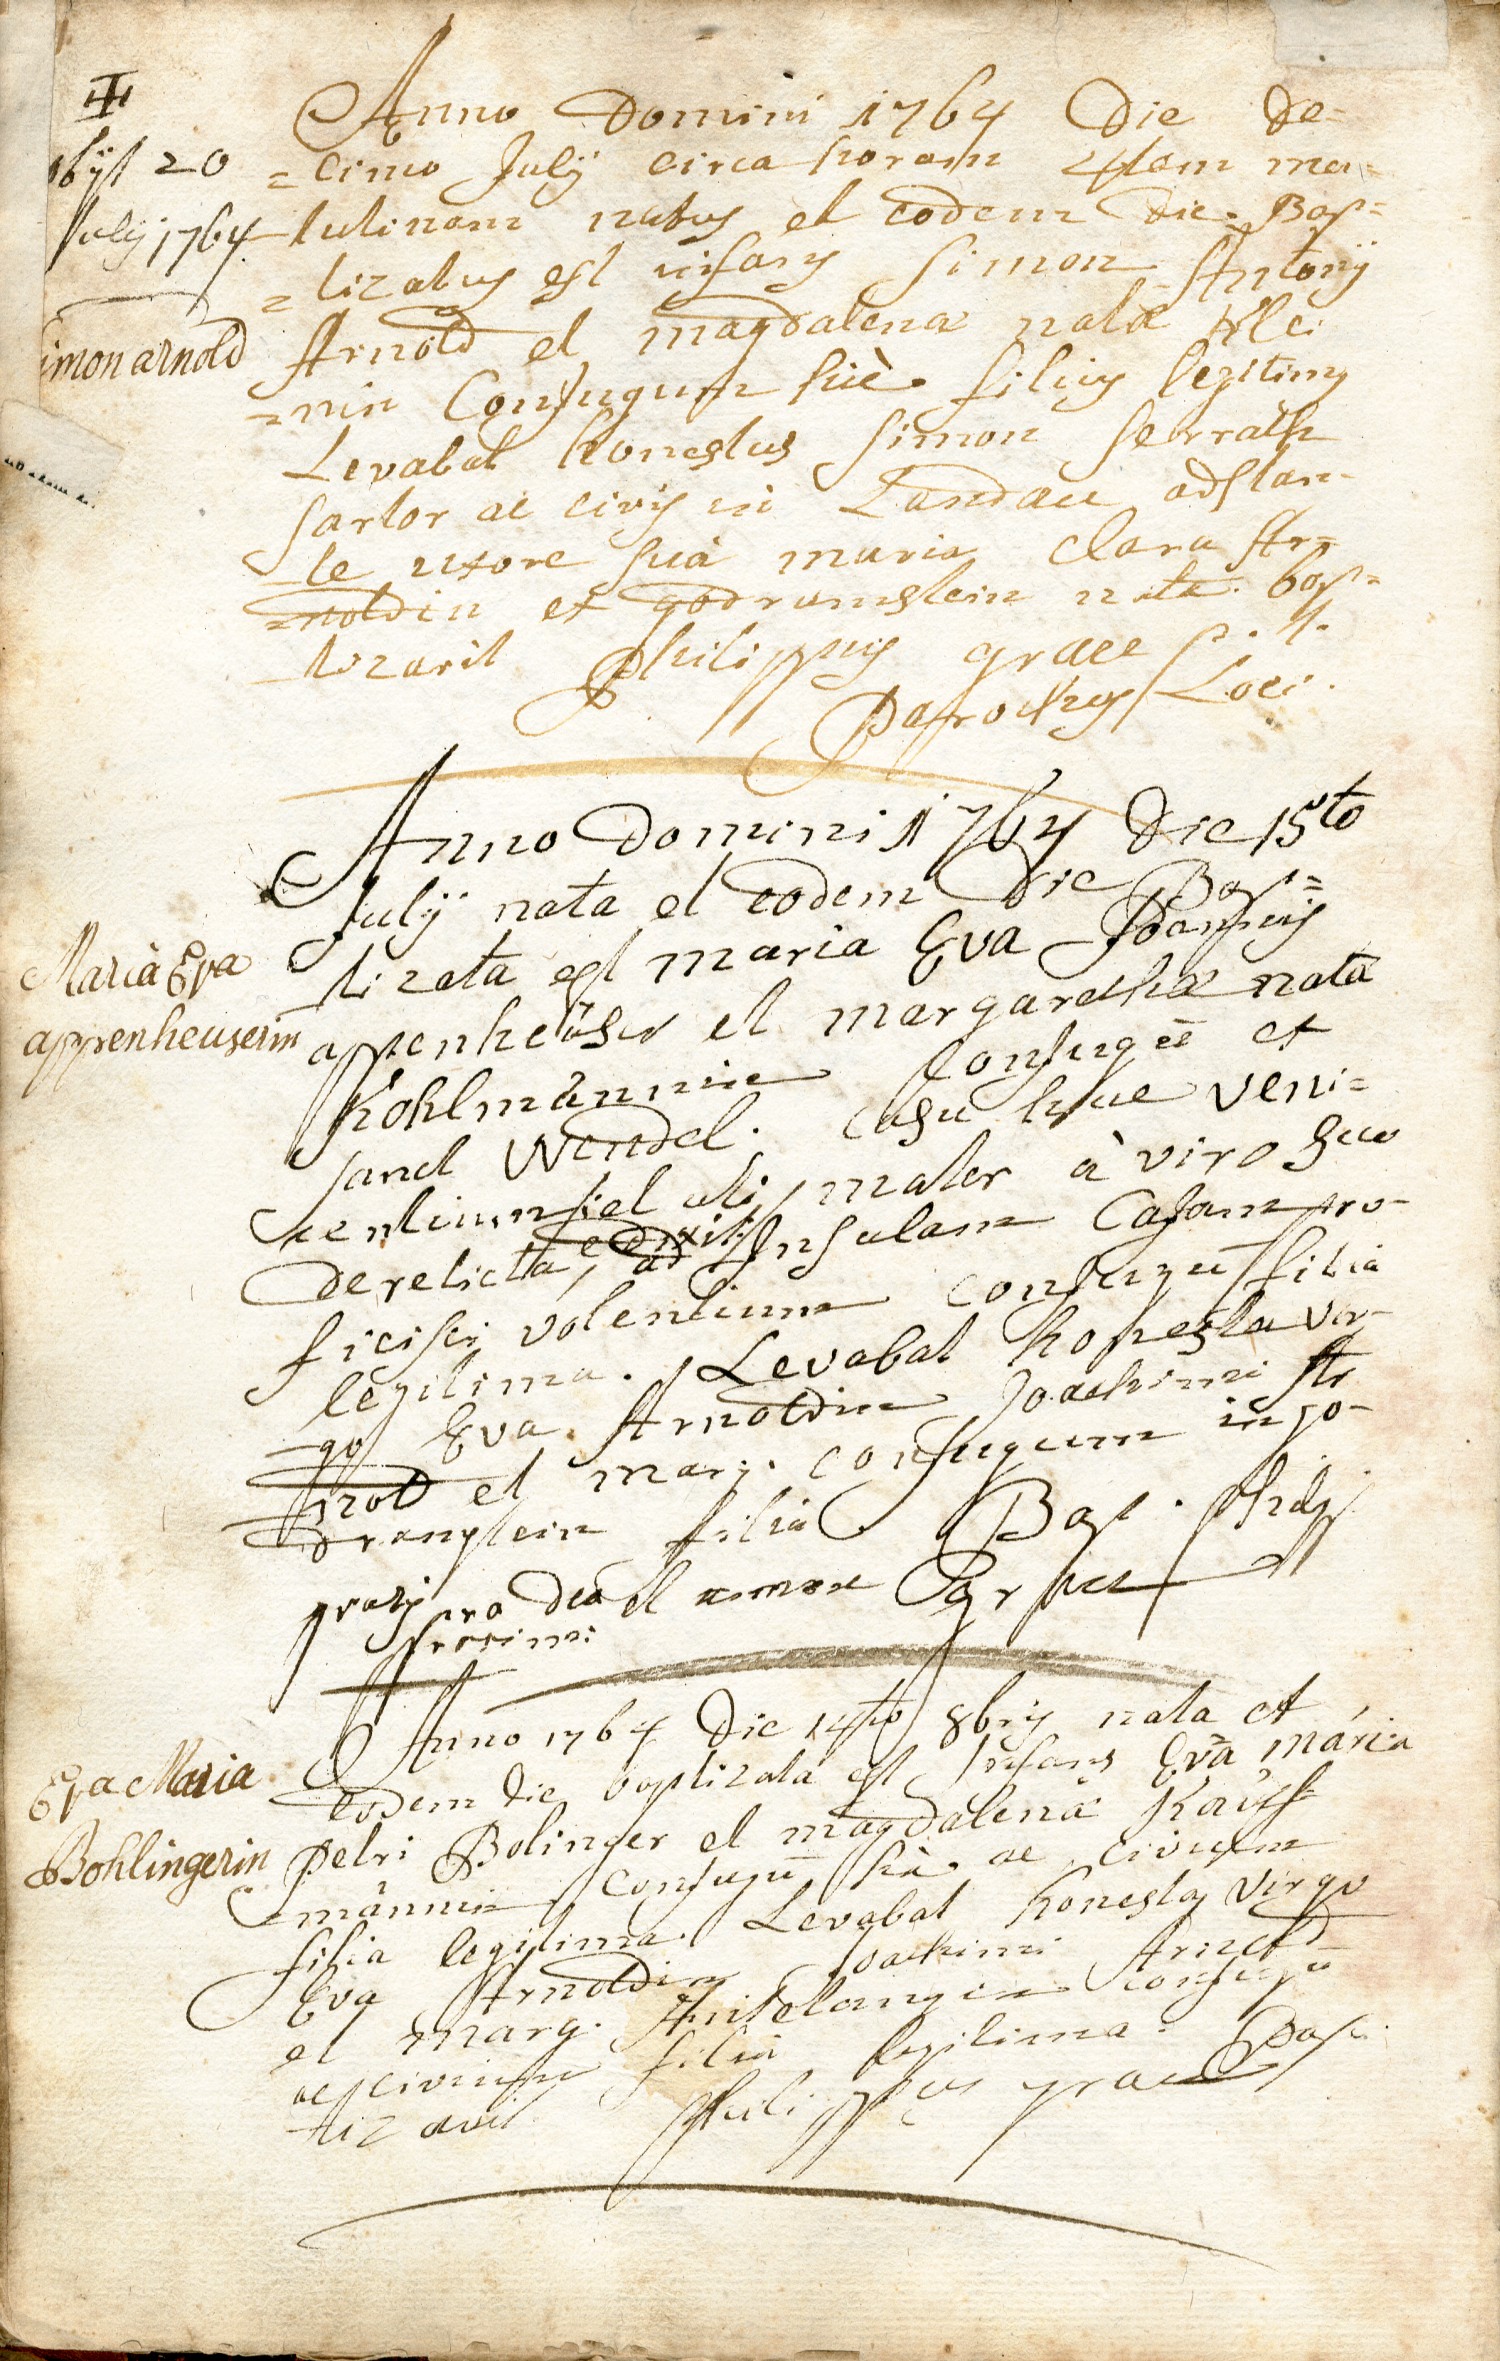 obijt 20
July 1764
Simon arnold
Anno Domini 1764 Die de=
=cimo July circa horam 4tam ma=
tutinam natus et eodem Die Bap=
=tizatus est infans Simon Antonij
Arnold et magdalenæ natæ Klei
=nin Conjugum hic filius legitimus
Levabat honestus Simon Serrath
sartor ac civis in Landau adstan-
te uxore suâ maria Clara Ar=
=noldin ex godramstein nata. bap=
tizavit Philippus graee p. t.
Parochus Loci.
Maria Eva
appenheuserin
Anno Domini 1764 Die 15to
July nata et eodem Die Bap=
tizata est maria Eva Joannis
appenheüser et margarethæ nata
Kohlmännin Conjugū ex
sanct Wendel. casu huc veni=
entium, et ubi mater à viro suo
derelicta, ad Insulam Casam pro-
ficisci volentium conjugū filia
legitima. Levabat honesta vir-
go Eva Arnoldin Joachimi Ar
nold et marg. conjugum in go-
dramstein filia Bap. Phily
pro deo et amore
proximi
Eva Maria
Bohlingerin
Anno 1764 Die 14to 8bris nata et
eodem die baptizata est infans Eva mária
petri Bolinger et magdalenæ Kauff
männin conjugū hic ac civium
filia legitima. Levabat honesta virgo
Eva Arnoldin Joachimi Arnold
et marg. conjugū
ac civium filia legitima. Bap
tizavit Philippus graee